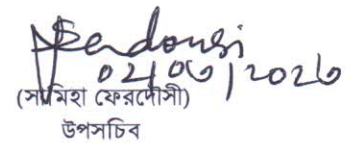 Sferdousi
02/06/2026
(সামিহা ফেরদৌসী)
উপসচিব